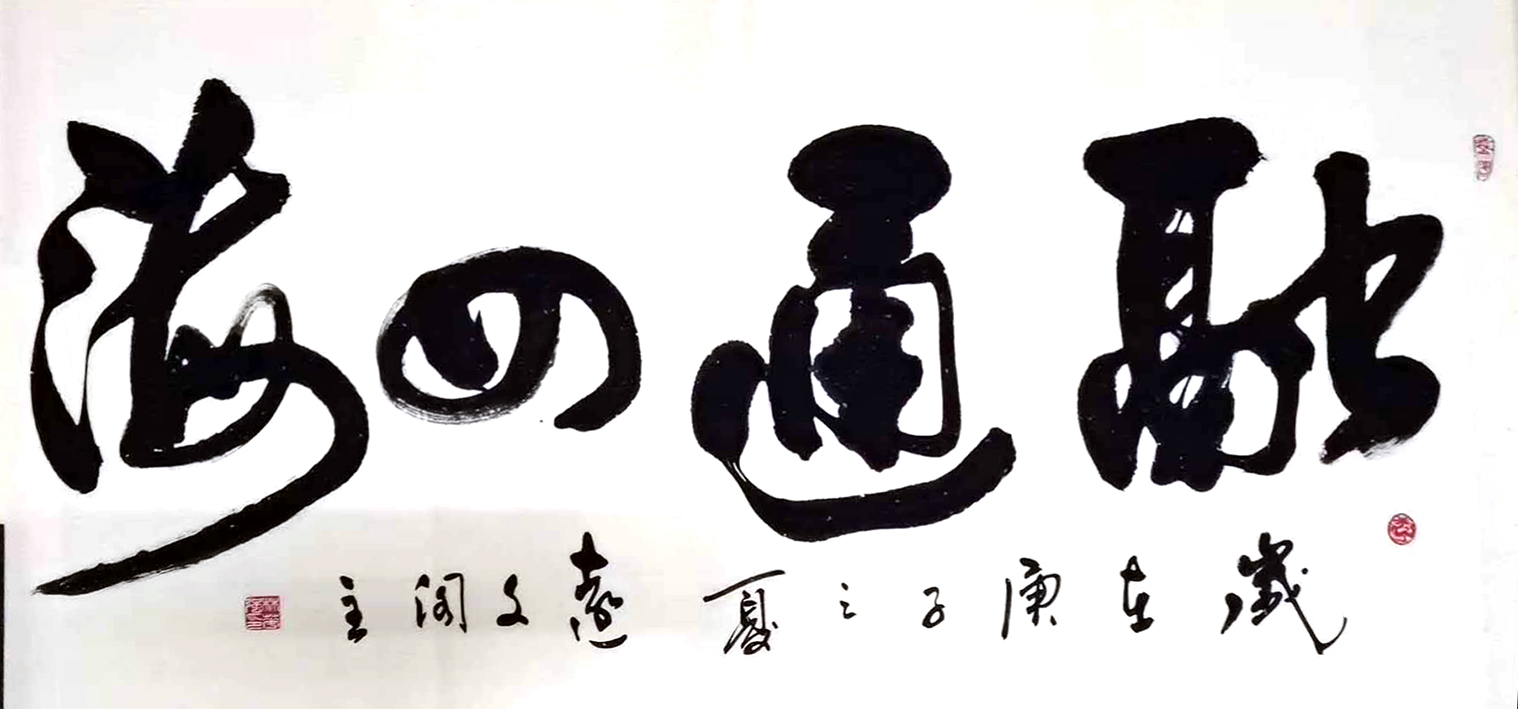 融通四海
歲在庚子之夏 文閣主